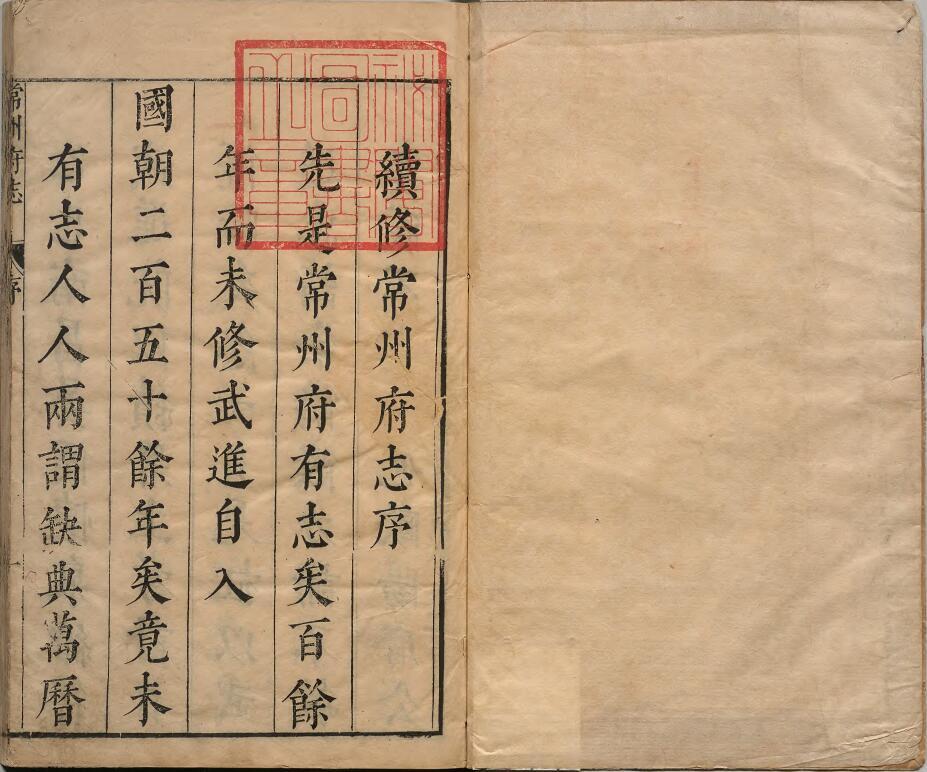 續修常州府志序
先是常州府有志矣百餘
年而未修武進自入
國朝二百五十餘年矣竟未
有志人人兩謂缺典萬曆
常州府志
序
一